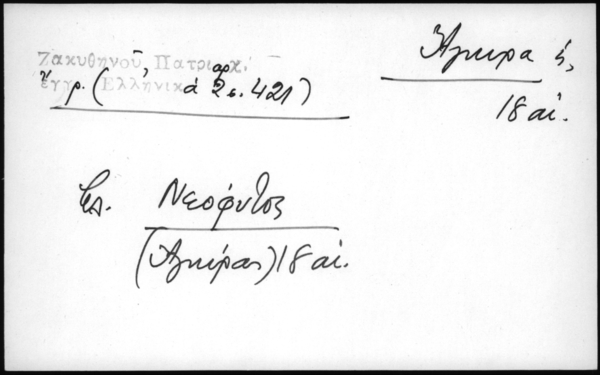 Ζακυθηνοῦ, Πατριαρχ.
ἔγγρ. (Ἑλληνικά 2 σ. 421)
Ἄγκυρα
18 αἰ.
Ἐπ. Νεόφυτος
(Ἀγκύρας) 18 αἰ.